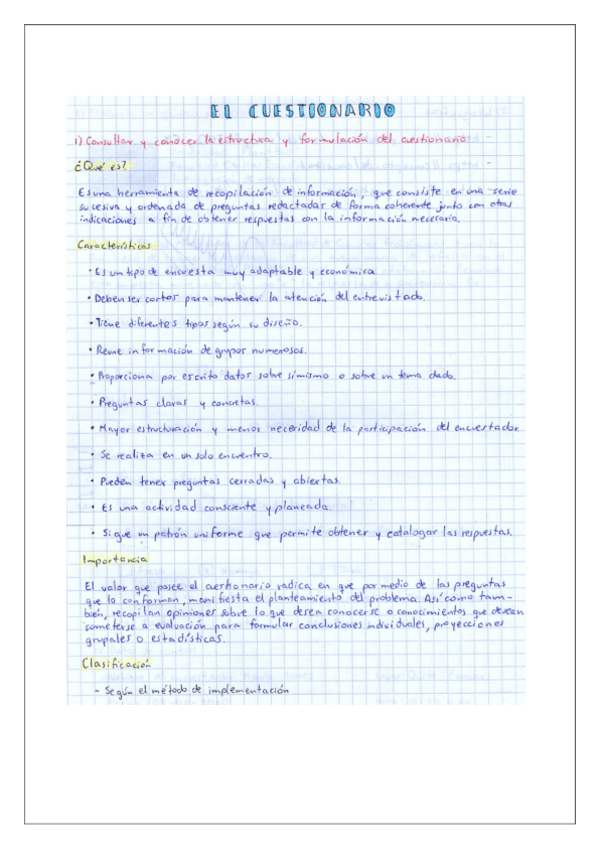 EL CUESTIONARIO
1) Consultar y conocer la estructura y formulación del cuestionario
¿Qué es?
Es una herramienta de recopilación de información, que consiste en una serie
sucesiva y ordenada de preguntas redactadar de forma coherente junto con otras
indicaciones a fin de obtener respuestas con la información necesaria.
Características
• Es un tipo de encuesta muy adaptable y económica
• Deben ser cortos para mantener la atención del entrevistado.
• Tiene diferentes tipos según su diseño.
• Reune información de grupos numerosos.
• Proporciona por escrito datos sobre símismo o sobre un tema dado.
• Preguntas claras y concretas.
• Mayor estructuración y menor neceridad de la participación del encuestador
• Se realiza en un solo encuentro.
• Pueden tener preguntas cerradas y abiertas.
• Es una actividad consciente y planeada
• Sigue un patrón uniforme que permite obtener y catalogar las respuestas.
Importancia
El valor que posee el cuestionario radica en que por medio de las preguntas
que lo conforman, manifiesta el planteamiento del problema. Así como tam-
bién, recopilan opiniones sobre lo que desea conocerse o conocimientos que desean
someterse a evaluación para formular conclusiones individuales, proyecciones
grupales o estadísticas.
Clasificación
- Según el método de implementación